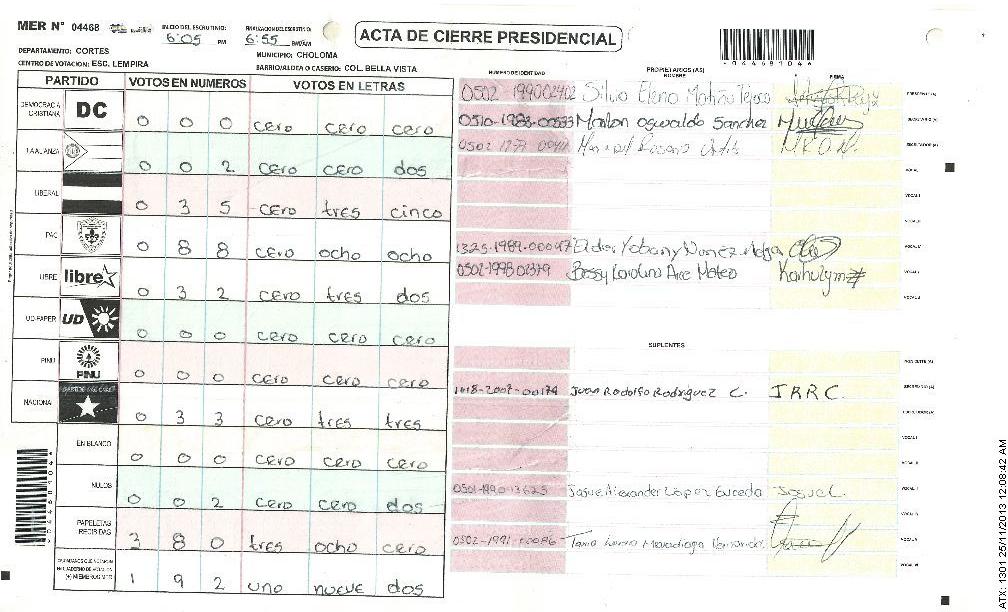 MER N° 04468
INICIO DEL ESCRUTINIO: 6:05 PM
FINALIZACION DEL ESCRUTINIO: 6:55 PM/AM
ACTA DE CIERRE PRESIDENCIAL
DEPARTAMENTO: CORTES
MUNICIPIO: CHOLOMA
CENTRO DE VOTACION: ESC. LEMPIRA
BARRIO/ALDEA O CASERIO: COL. BELLA VISTA
PARTIDO VOTOS EN NUMEROS VOTOS EN LETRAS
DEMOCRACIA CRISTIANA DC 0 0 0 cero cero cero
LA ALIANZA 0 0 2 cero cero dos
LIBERAL 0 3 5 cero tres cinco
PAC 0 8 8 cero ocho ocho
LIBRE libre 0 3 2 cero tres dos
UD-FAPER UD 0 0 0 cero cero cero
PINU PINU 0 0 0 cero cero cero
NACIONAL 0 3 3 cero tres tres
EN BLANCO 0 0 0 cero cero cero
NULOS 0 0 2 cero cero dos
PAPELETAS RECIBIDAS 3 8 0 tres ocho cero
(+) MIEMBROS MER 1 9 2 uno nueve dos
NUMERO DE IDENTIDAD
PROPIETARIOS (AS)
NOMBRE
FIRMA
0502-199002402 Silvio Elena
PRESIDENTE (A)
0510-1988-00533 Marlon Oswaldo Sanchez
SECRETARIO (A)
0502
ESCRUTADOR (A)
1325-1989-00097
0502-1995-02379 Bessy Carolina Arce Mateo
SUPLENTES
1618-2007-00174 Juan Rodolfo Rodriguez C. JRRC.
Josue Alexander Lopez Euceda Josue L.
0502-1991-00086 Tania
ATX: 1301 25/11/2013 12:08:42 AM